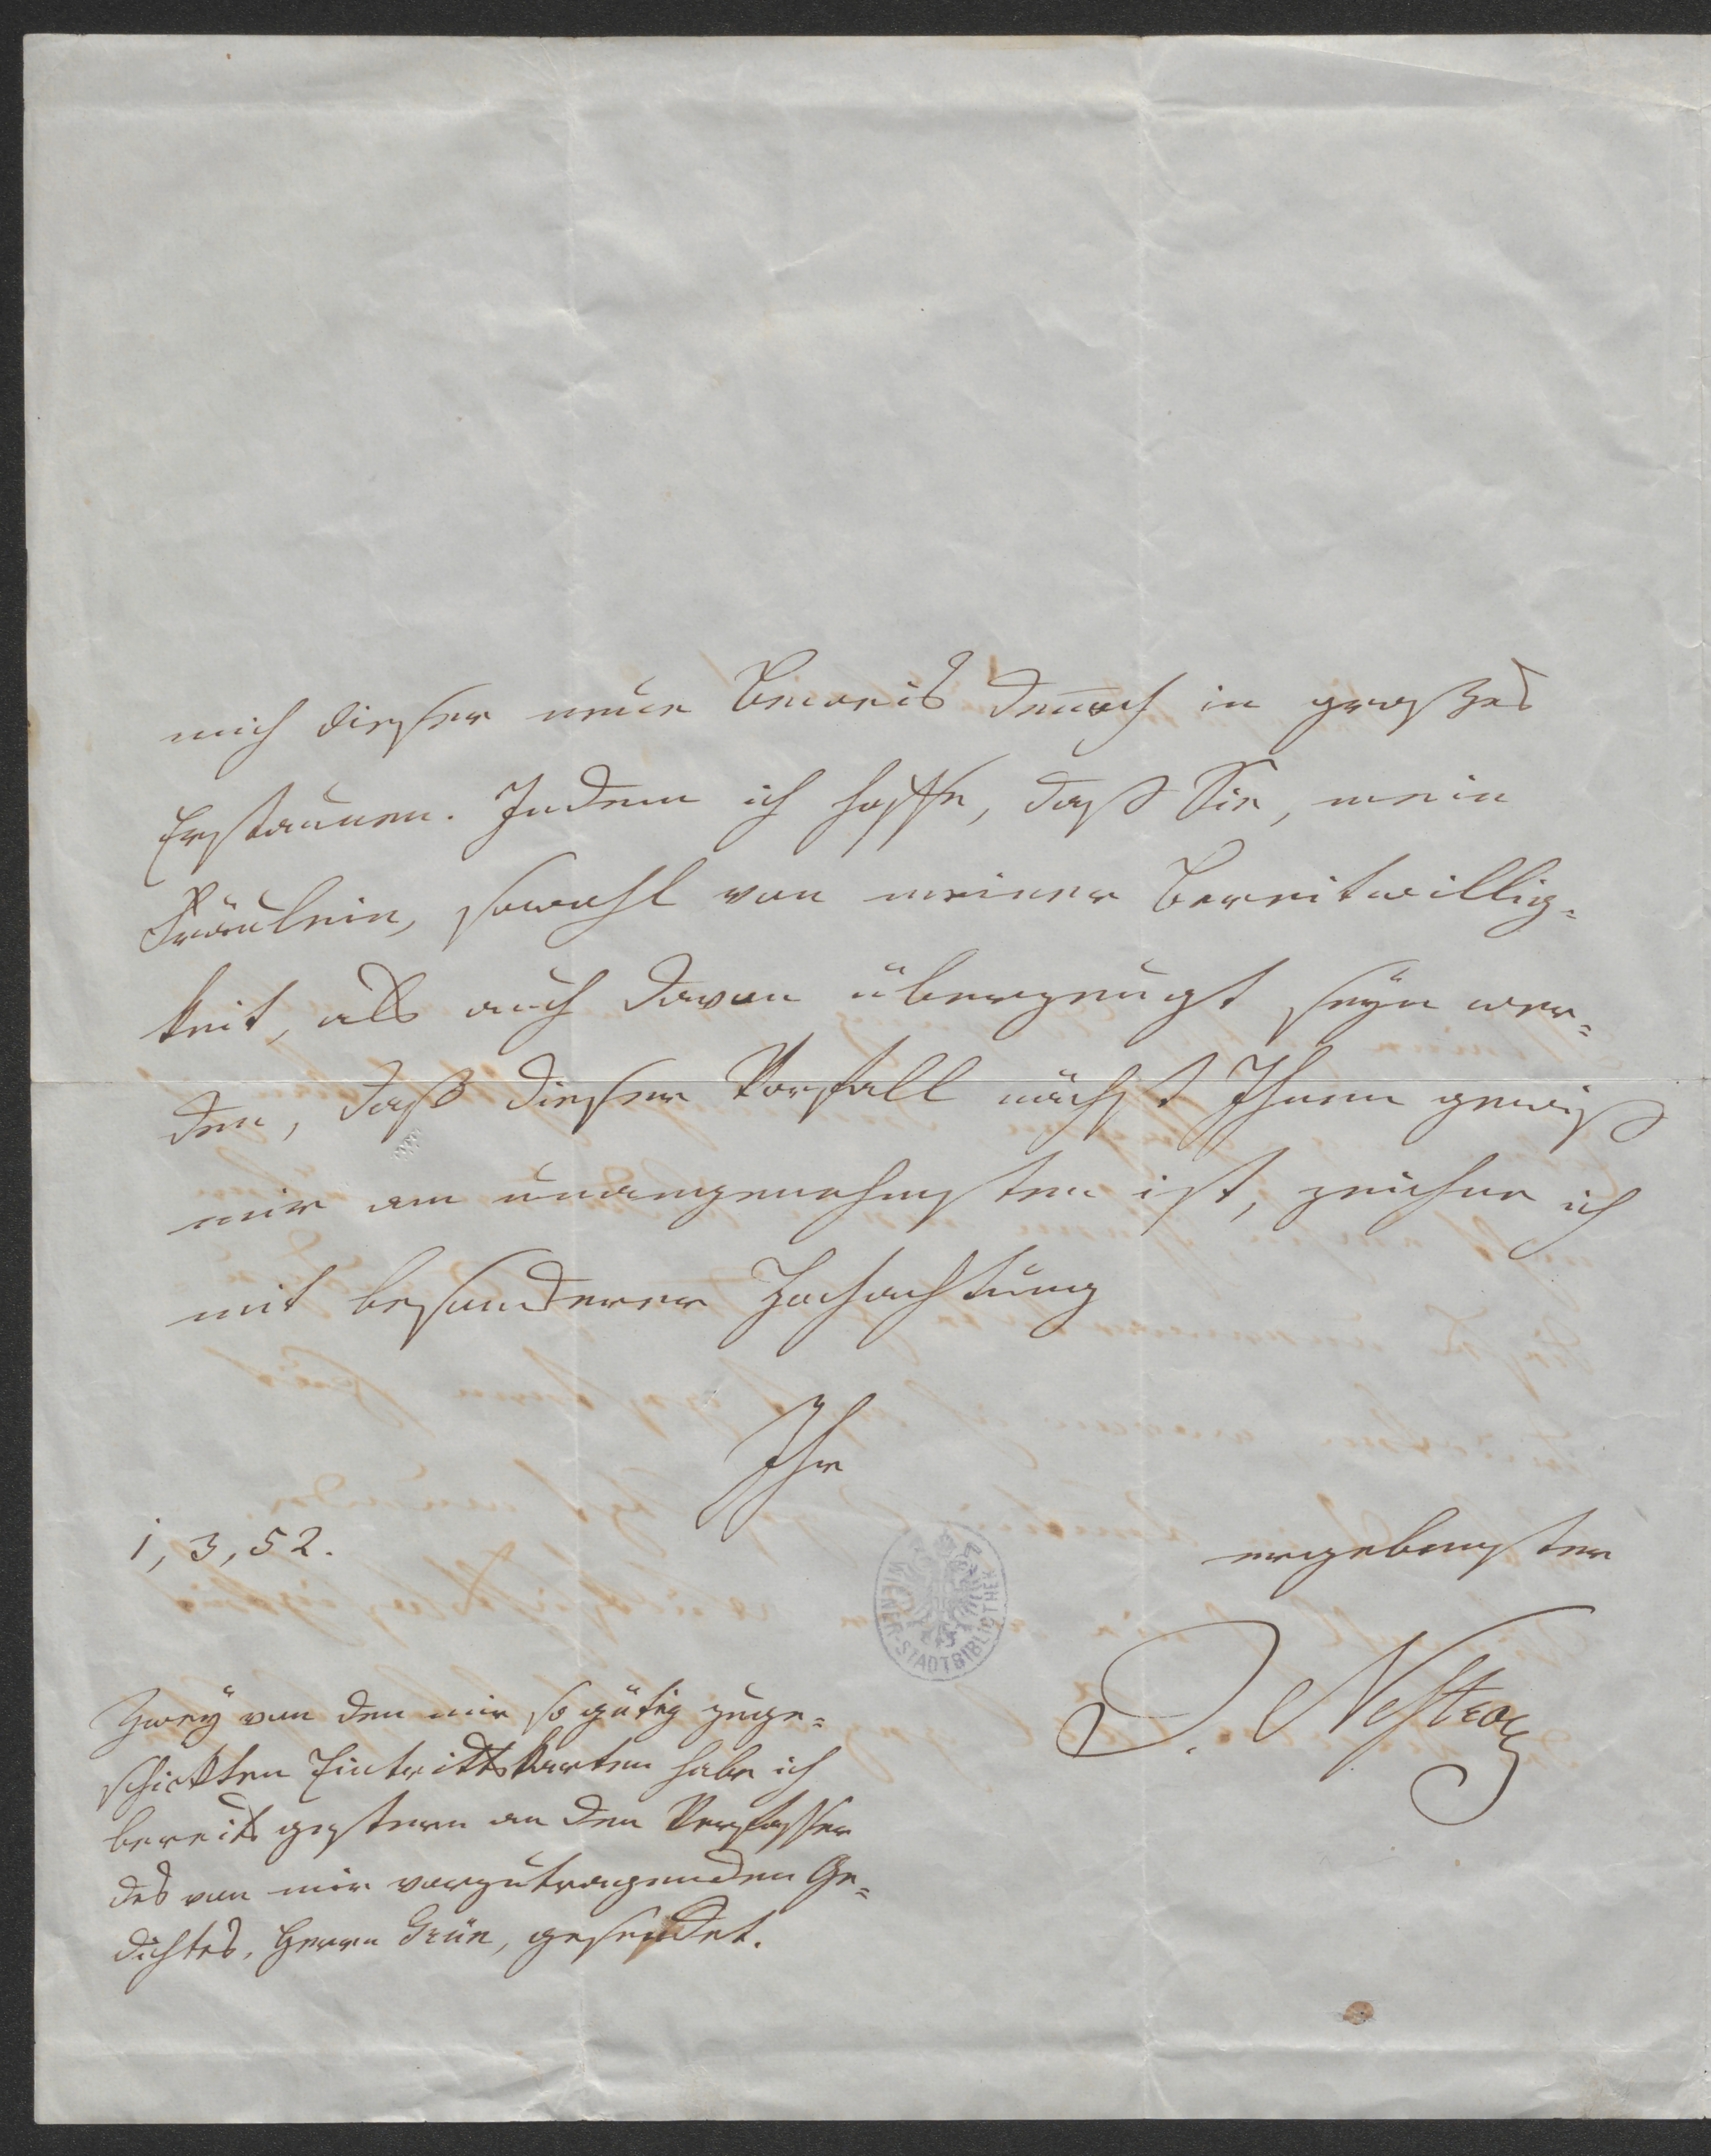 mich dieser neue Beweis dennoch in großes
Erstaunen. Indem ich hoffe, daß Sie, mein
Fräulein, sowohl von meiner Bereitwillig=
keit, als auch davon überzeugt seyn wer=
den, daß dieser Vorfall nächst Ihnen gewiß
mir am unangenehmsten ist, zeichne ich
mit besonderer Hochachtung
Ihr
1, 3, 52.
ergebenster
J. Nestroy
WIENER-STADTBIBLIOTHEK
Zwey von den mir so gütig zuge=
schickten Eintrittskarten habe ich
bereits gestern an den Verfasser
des von mir vorzutragenden Ge=
dichtes, Herrn Grün, gesendet.